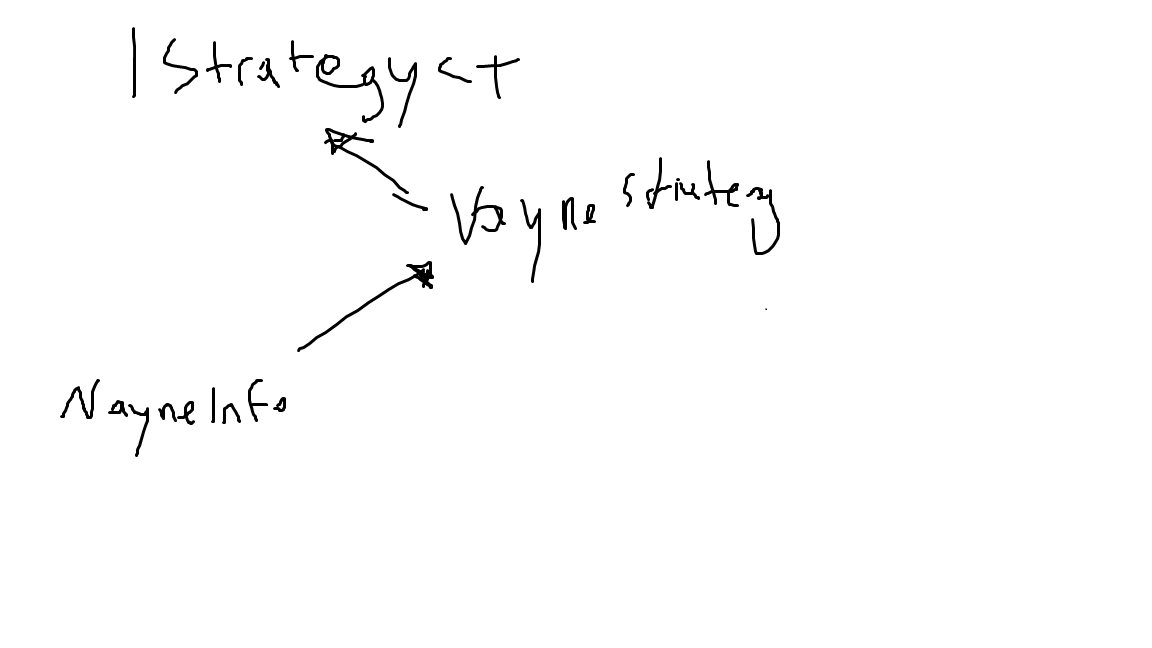 IStrategy<T
Vayne Strategy
NayneInfo